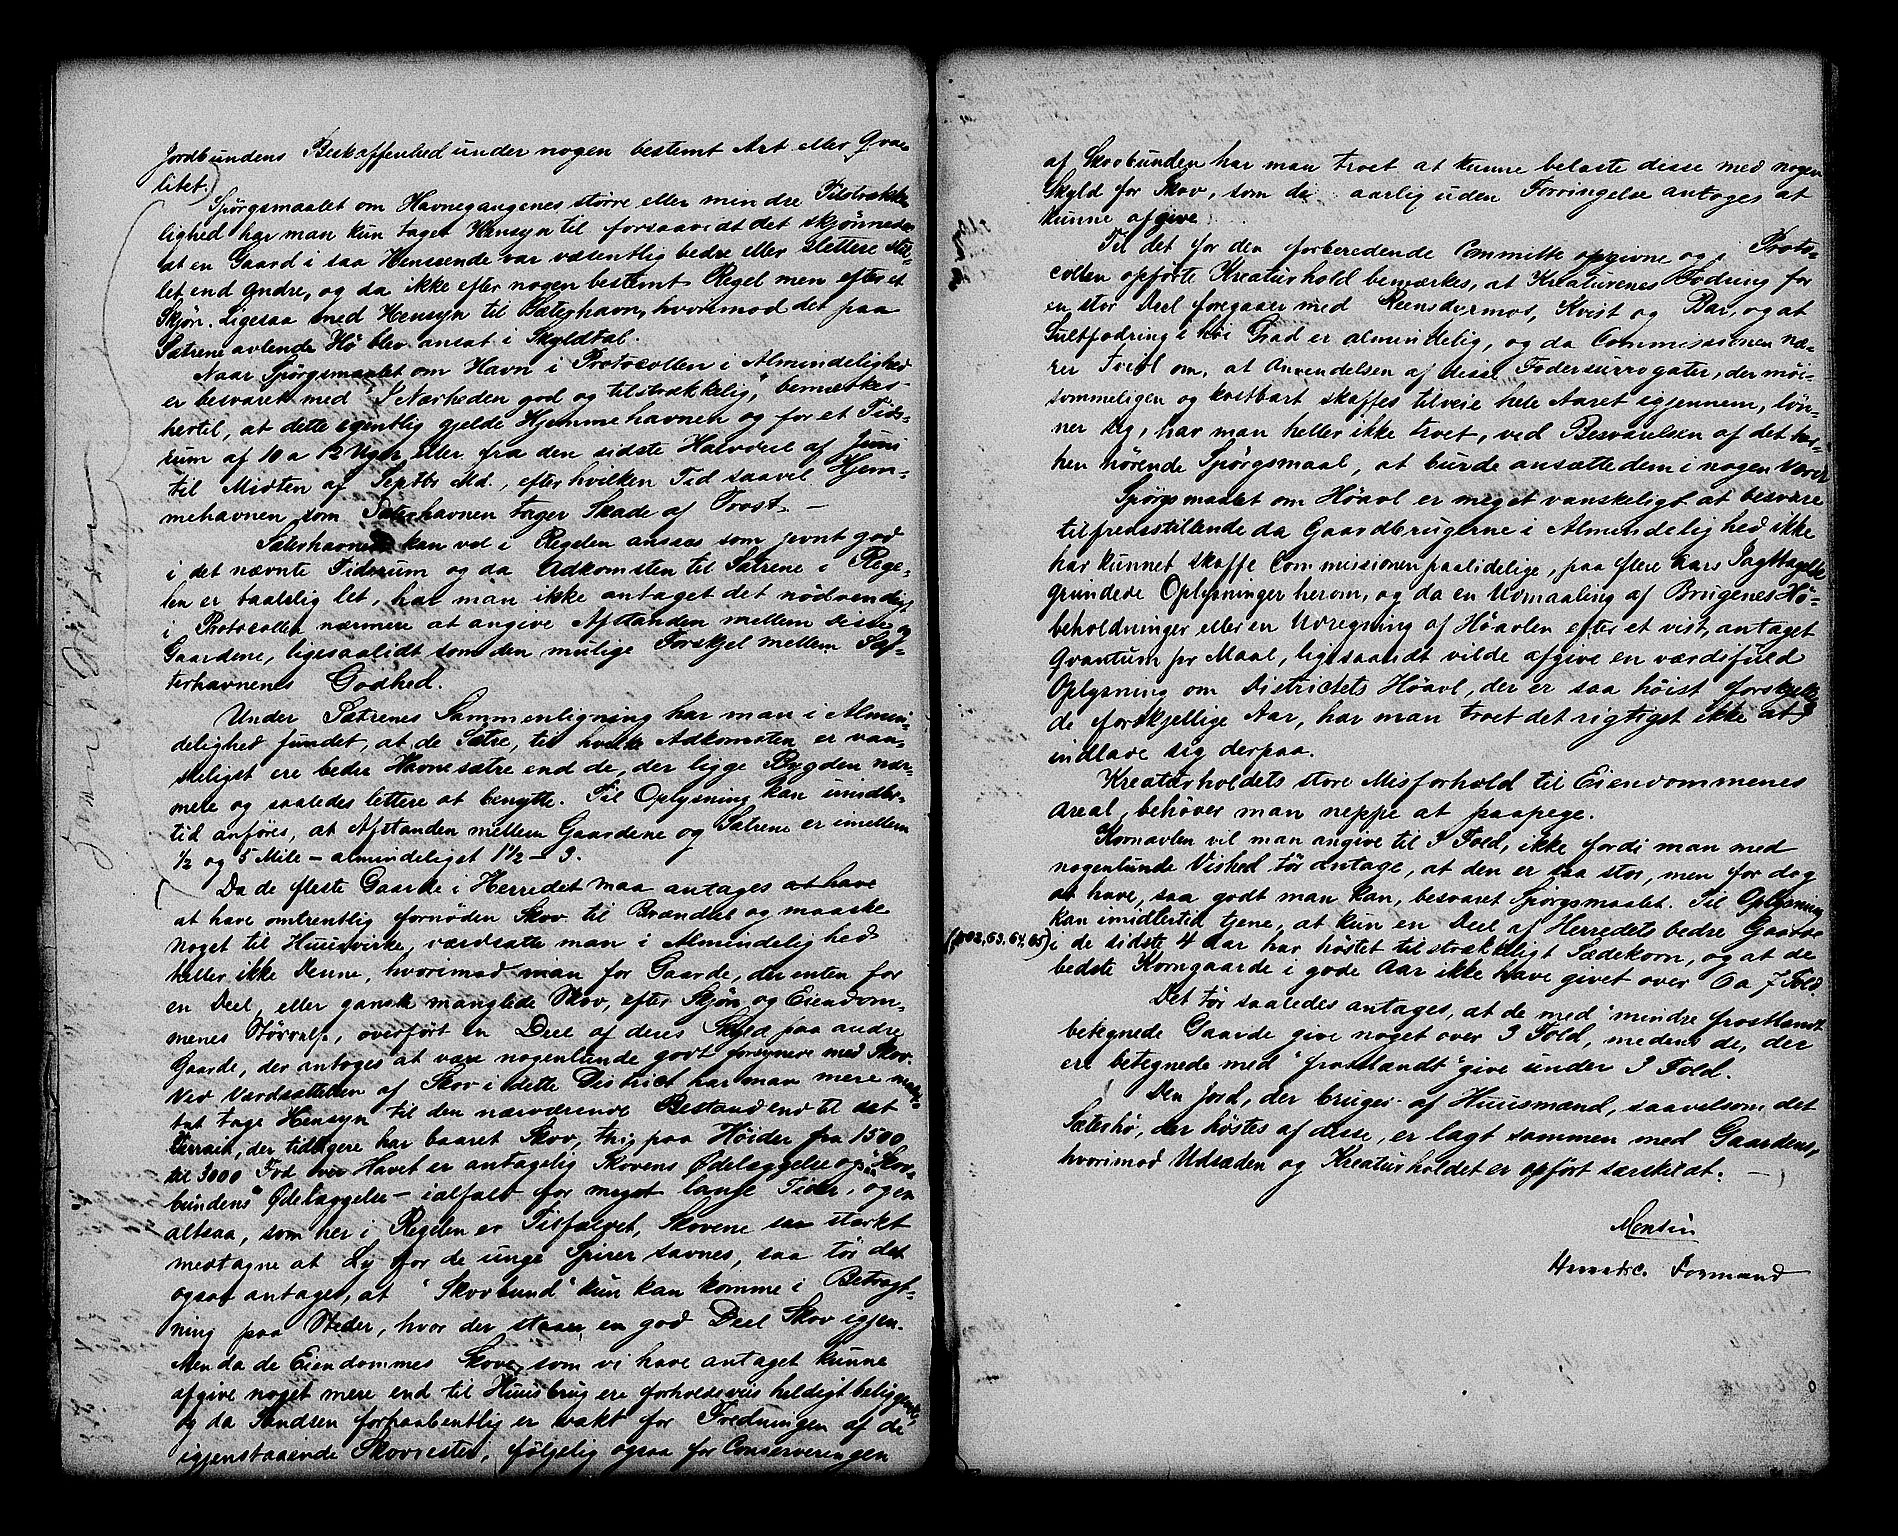 Jordbundens Beskaffenhed under nogen bestemt Art eller Qva-
litet.)
Spörgsmaalet om Havnegangenes större eller mindre Tilstrække-
lighed har man kun taget Hensyn til forsaavidt det skjönnedes
at en Gaard i saa Henseende var væsentlig bedre eller slettere stil-
let end andre, og da ikke efter nogen bestemt Regel men efter et
Skjön. Ligesaa med Hensyn til Sæterhavn, hvorimod det paa
Sætrene avlende Hö blev ansat i Skyldtal.
Naar Spörgsmaalet om Havn i Protocollen i Almindelighed
er besvaret med "I Nærheden god og tilstrækkelig," bemærkes
hertil, at dette egentlig gjelde Hjemmehavnen og for et Tids-
rum af 10 a 12 Uger eller fra den sidste Halvdeel af Juni
til Midten af Septbr Md., efter hvilken Tid saavel Hjem-
mehavnen som Sæterhavnen tager Skade af Frost. —
Sæterhavnen kan vel i Regelen ansees som jevnt god
i det nævnte Tidsrum og da Adkomsten til Sætrene i Rege-
len er taalelig let, har man ikke antaget det nödvendigt
i Protocollen nærmere at angive Afstanden mellem disse og
Gaardene, ligesaalidt som den mulige Forskjel mellem Sæ-
terhavnens Godhed.
Under Sætrenes Sammenligning har man i Almin-
delighed fundet, at de Sætre, til hvilke Adkomsten er van-
skeligst ere bedre Havnesætre end de, der ligge Bygden nær-
mere og saaledes lettere at benytte. Til Oplysning kan imidler-
tid anföres, at Afstanden mellem Gaardene og Sætrene er imellem
1/2 og 5 Mile – almindeligst 1 1/2 – 3.
Da de fleste Gaarde i Herredet maa antages at have
at have omtrentlig fornöden Skov til Brændsel og maaske
noget til Huusvirke, værdsatte man i Almindelighed
heller ikke denne, hvorimod man for Gaarde, der enten for
en Deel, eller gansk manglede Skov, efter Skjön og Eiendom-
menes Störrelse, overfört en Deel af deres Skyld paa andre
Gaarde, der antoges at være nogenlunde godt forsynede med Skov.
Ved Værdsættelsen af Skov i dette District har man mere
tage Hensyn til den nærværende Bestand end til det
Terrain, der tidligere har baaret Skov, thi, paa Höider fra 1500
til 3000 Fod over Havet er antagelig Skovens Ödelæggelse og "Skov-
bundens" Ödelæggelse – ialfald for meget lange Tider, og en
altsaa, som her i Regelen er Tilfældet, Skovene saa stærkt
medtagne at Ly for de unge Spirer savnes, saa tör det
ogsaa antages, at "Skovbund" kun kan komme i Betragt-
ning paa Steder, hvor der staaer en god Deel Skov igjen.
Men da de Eiendommes Skove som vi have antaget kunne
afgive noget mere end til Huusbrug ere forholdsviis heldigt beliggende,
og da Sandsen forhaabentlig er vakt for Fredningen af de
igjenstaaende Skovrester, fölgelig ogsaa for Conserveringen
af Skovbunden har man troet at kunne belaste disse med nogen
Skyld for Skov, som de aarlig uden Forringelse antages at
kunne afgive.
Til det for den forberedende Committe opgivne og i Proto-
collen opförte Kreaturhold bemærkes, at Kreaturenes Fodring for
en stor Deel foregaaer med Reensdyrmos, Kvist og Bar, og at
Sultfodring i höi Grad er almindelig, og da Commissionen næ-
rer Tvivl om, at Anvendelsen af disse Fodersurrogater, der möi-
sommeligen og kostbart skaffes tilveie hele Aaret igjennem, lön-
ner sig, har man heller ikke troet, ved Besvarelsen af det her-
hen hörende Spörgsmaal, at burde ansætte dem i nogen Værdi.
Spörgsmaalet om Höavl er meget vanskeligt at besvare
tilfredsstillende da Gaardbrugerne i Almindelighed ikke
har kunnet skaffe Commissionen paalidelige, paa flere Aars Iagttagelse
grundede Oplysninger herom, og da en Udmaaling af Brugenes Hö-
beholdninger eller en Udregning af Höavlen efter et vist, antaget
Qvantum pr Maal, ligesaalidt vilde afgive en værdifuld
Oplysning om Districtets Höavl, der er saa höist forskjellig
de forskjellige Aar, har man troet det rigtigst ikke at
indlade sig derpaa.
Kreaturholdets store Misforhold til Eiendommenes
Areal, behöver man neppe at paapege.
Kornavlen vil man angive til 3 Fold, ikke fordi man med
nogenlunde Vished tör antage, at den er saa stor, men for dog
at have, saa godt man kan, besvaret Spörgsmaalet. Til Oplysning
kan imidlertid tjene, at kun en Deel af Herredets bedre Gaarde
(1862, 63, 64, 65) i de sidste 4 Aar har höstet tilstrækkeligt Sædekorn, og at de
bedste Korngaarde i gode Aar ikke have givet over 6 a 7 Fold.
Det tör saaledes antages, at de med "mindre frostlændt"
betegnede Gaarde give noget over 3 Fold, medens de, der
ere betegnede med "frostlændt" give under 3 Fold.
Den Jord, der bruges af Huusmænd, saavelsom det
Sæterhö, der höstes af disse, er lagt sammen med Gaardens,
hvorimod Udsæden og Kreaturholdet er opfört særskilt. —
Formand